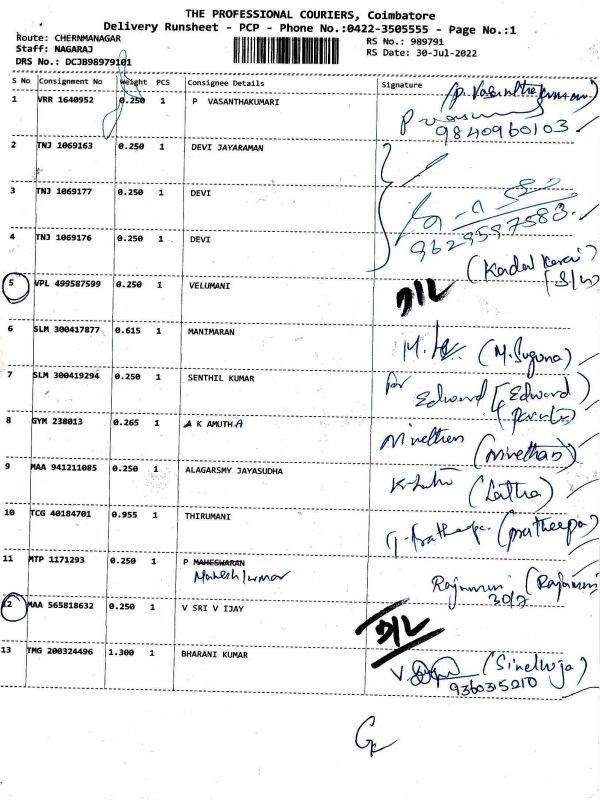 THE PROFESSIONAL COURIERS, Coimbatore
Delivery Runsheet - PCP - Phone No.:0422-3505555 - Page No.:1
Route: CHERNMANAGAR
Staff: NAGARAJ
DRS No.: DCJB98979101
RS No.: 989791
RS Date: 30-Jul-2022
S No Consignment No Weight PCS Consignee Details Signature
1 VRR 1640952 0.250 1 P VASANTHAKUMARI
9840960103
2 TNJ 1069163 0.250 1 DEVI JAYARAMAN
3 TNJ 1069177 0.250 1 DEVI
9629597583
4 TNJ 1069176 0.250 1 DEVI
5 VPL 499587599 0.250 1 VELUMANI D/L
6 SLM 300417877 0.615 1 MANIMARAN (M.Suguna)
7 SLM 300419294 0.250 1 SENTHIL KUMAR for Edward (Edward
8 GYM 238013 0.265 1 A K AMUTHA
9 MAA 941211085 0.250 1 ALAGARSMY JAYASUDHA (Latha)
10 TCG 40184701 0.955 1 THIRUMANI (Pratheepa)
11 MTP 1171293 0.250 1 P MAHESWARAN
Maheshkumar
30/7
12 MAA 565818632 0.250 1 V SRI V IJAY D/L
13 TMG 200324496 1.300 1 BHARANI KUMAR
9360315210